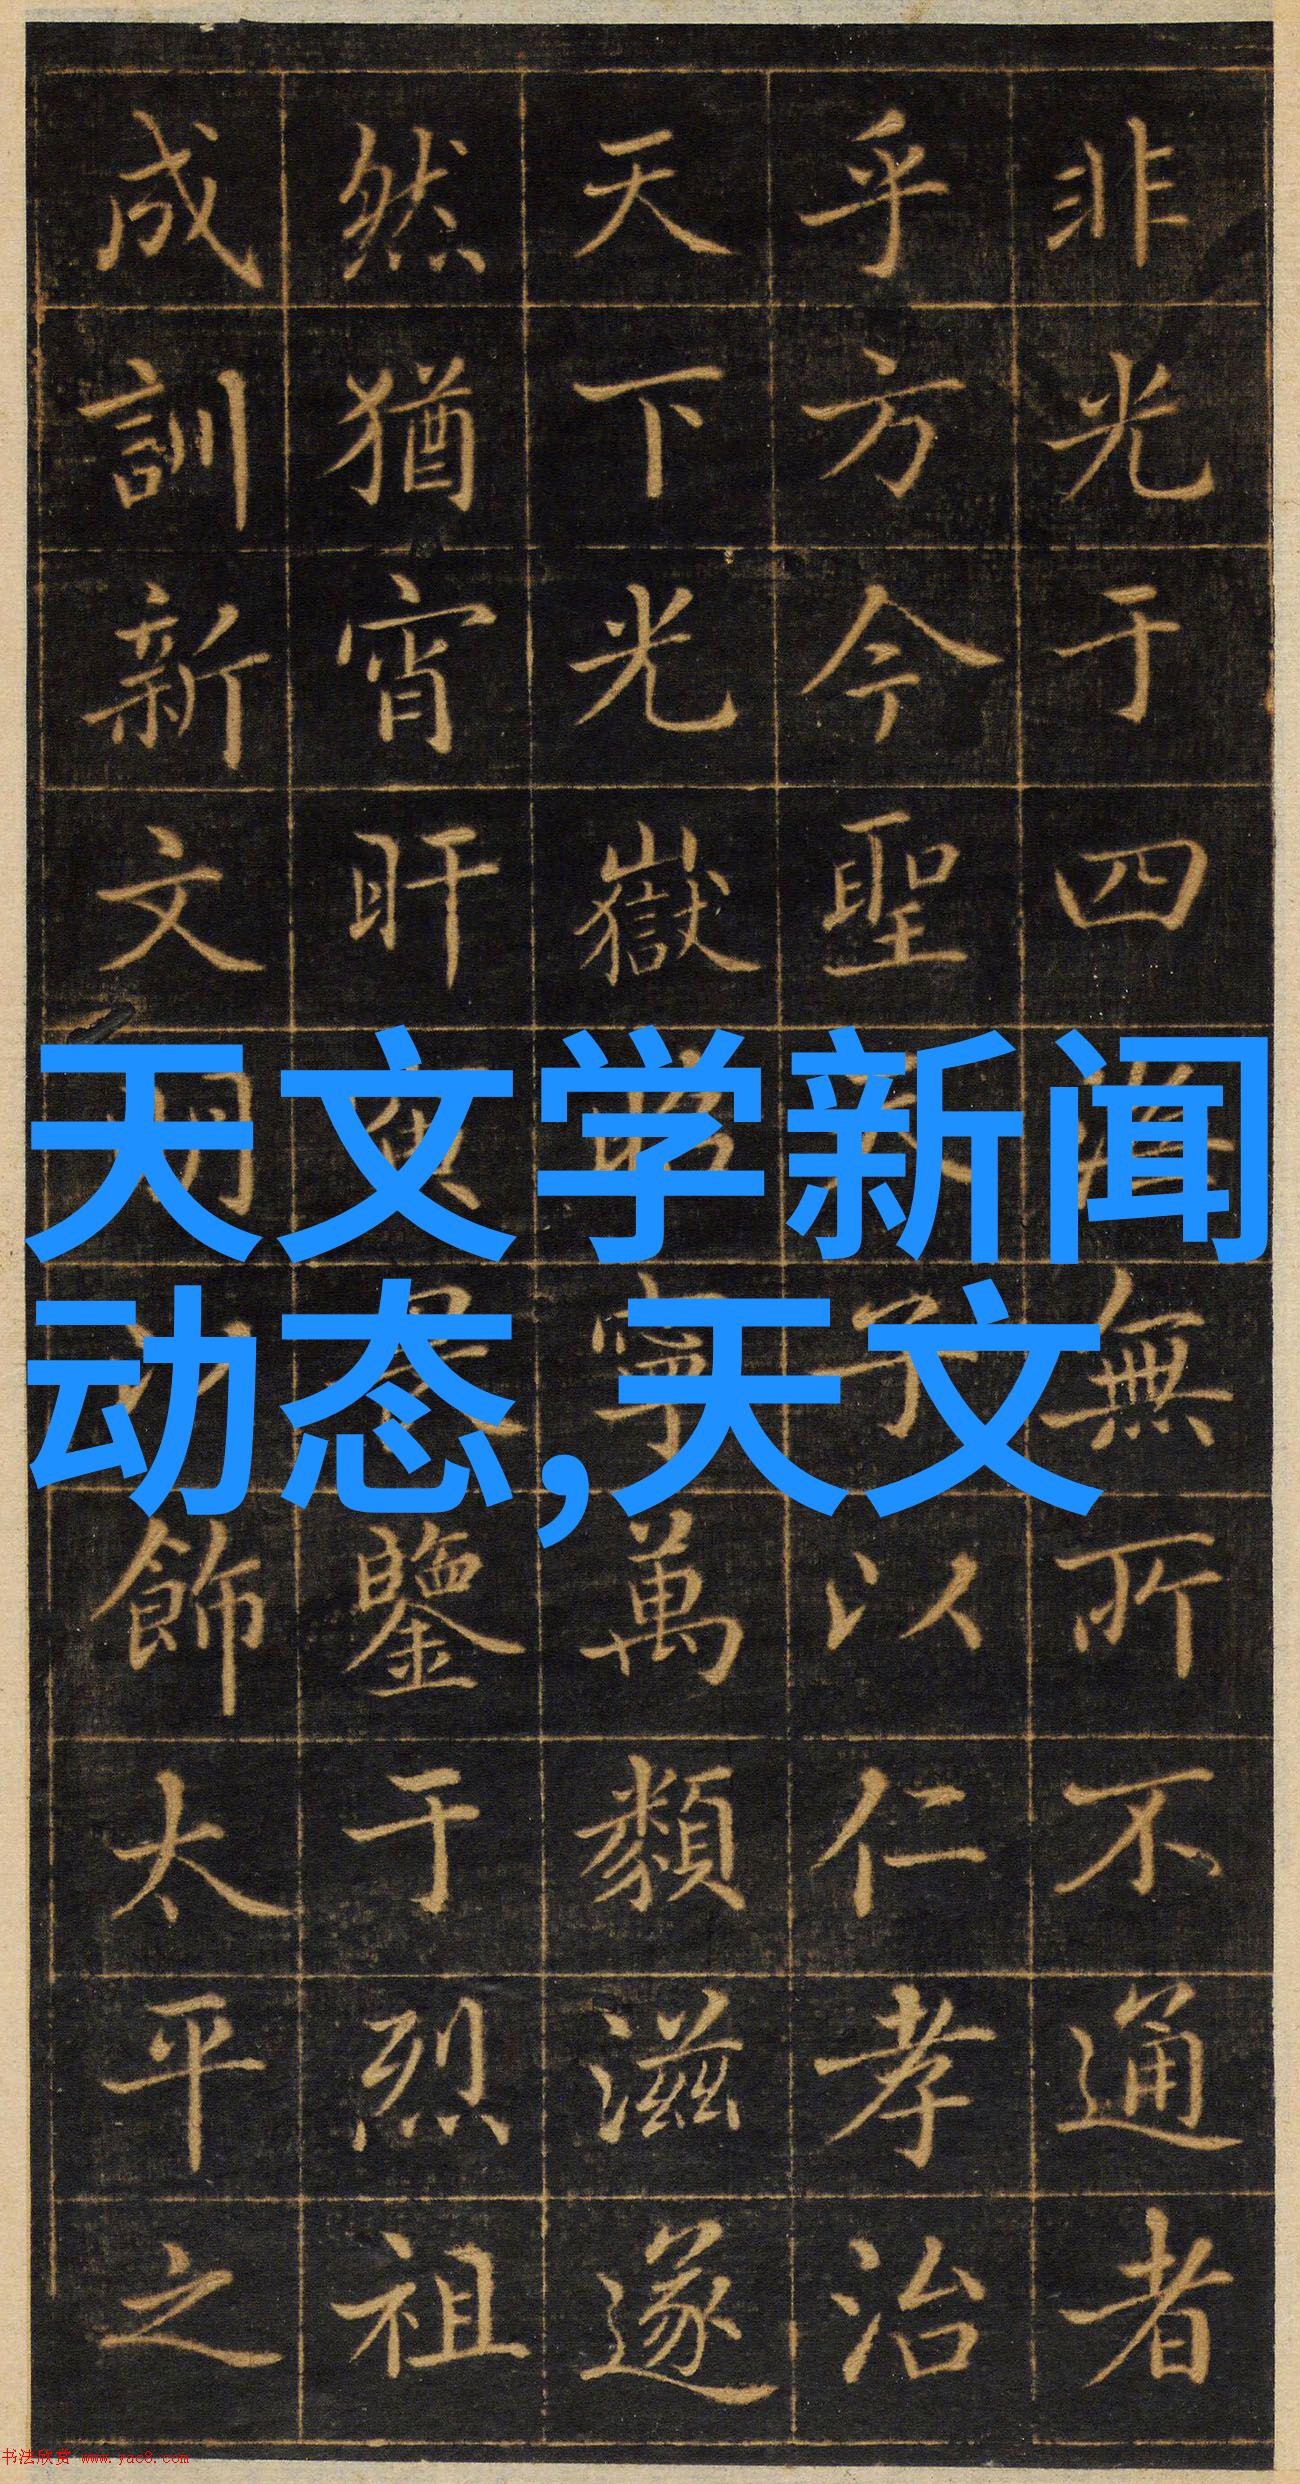 非光于四海無所不通者
乎方今聖天子以仁孝治
天下光嶽昭寧萬類滋遂
然猶宵旰寅畏鑒于烈祖
成訓新文明以飾太平之
天文学新闻
动态,天文
书法欣赏 www.yac8.com